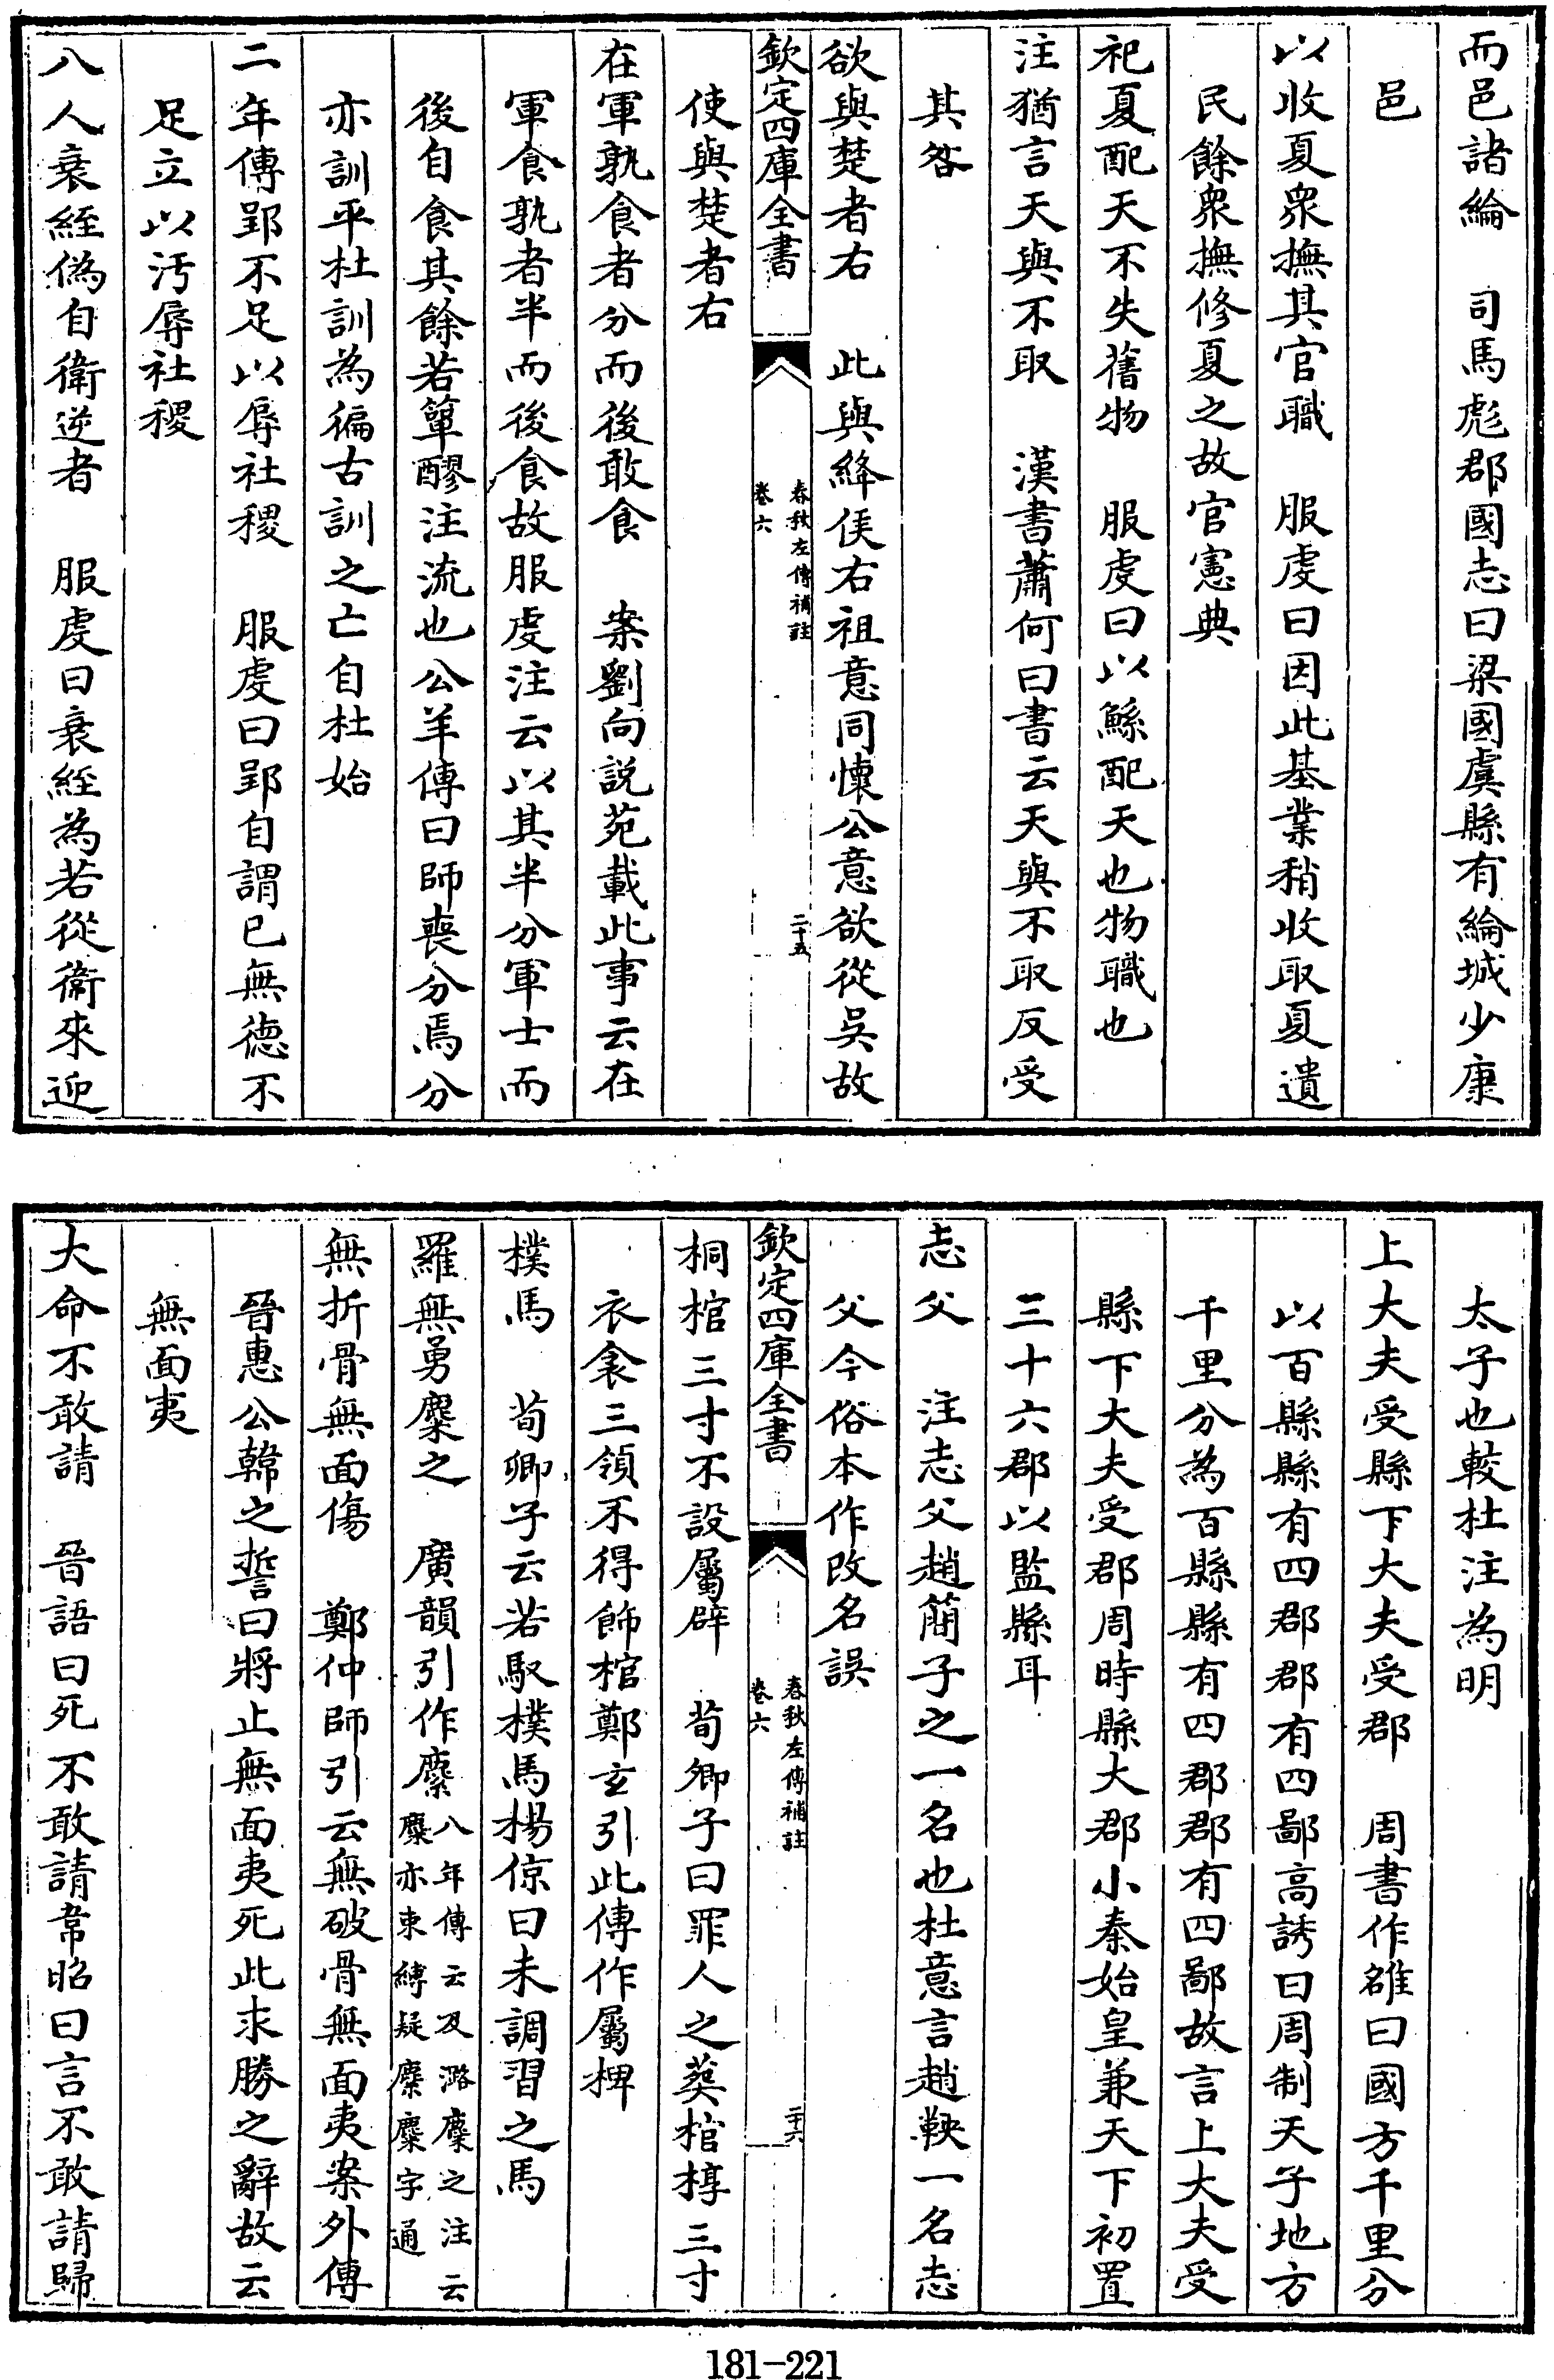 而邑諸綸　司馬彪郡國志曰梁國虞縣有綸城少康
邑
以收夏衆撫其官職　服䖍曰因此基業稍收取夏遺
民餘衆撫修夏之故官憲典
祀夏配天不失舊物　服䖍曰以鯀配天也物職也
注猶言天與不取　漢書蕭何曰書云天與不取反受
其咎
欲與楚者右　此與絳侯右袒意同懷公意欲從吳故
欽定四庫全書
春秋左傳補註
卷六
二十五
使與楚者右
在軍孰食者分而後敢食　案劉向說苑載此事云在
軍食孰者半而後食故服䖍注云以其半分軍士而
後自食其餘若簞醪注流也公羊傳曰師喪分焉分
亦訓平杜訓為徧古訓之亡自杜始
二年傳郢不足以辱社稷　服䖍曰郢自謂已無德不
足立以汚辱社稷
八人衰絰偽自衛逆者　服䖍曰衰絰為若從衛來迎
太子也較杜注為明
上大夫受縣下大夫受郡　周書作雒曰國方千里分
以百縣縣有四郡郡有四鄙高誘曰周制天子地方
千里分為百縣縣有四郡郡有四鄙故言上大夫受
縣下大夫受郡周時縣大郡小秦始皇兼天下初置
三十六郡以監縣耳
志父　注志父趙簡子之一名也杜意言趙鞅一名志
父今俗本作改名誤
欽定四庫全書
春秋左傳補註
卷六
二十六
桐棺三寸不設屬辟　荀卿子曰罪人之葬棺椁三寸
衣衾三領不得飾棺鄭玄引此傳作屬椑
樸馬　荀卿子云若馭樸馬楊倞曰未調習之馬
羅無勇麇之　廣韻引作麏八年傳云及潞麇之注云
麇亦束縛疑麏麇字通
無折骨無面傷　鄭仲師引云無破骨無面夷案外傳
晉惠公韓之誓曰將止無面夷死此求勝之辭故云
無面夷
大命不敢請　晉語曰死不敢請韋昭曰言不敢請歸
181-221